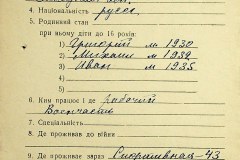 4. Національність русск.
5. Родинний стан
при ньому діти до 16 років:
1) Григорий м 1930
2) Михаил м 1932
3) Иван м 1935
6. Ким працює і де рабочий
7. Спеціальність
8. Де проживав до війни
9. Де проживає зараз 43